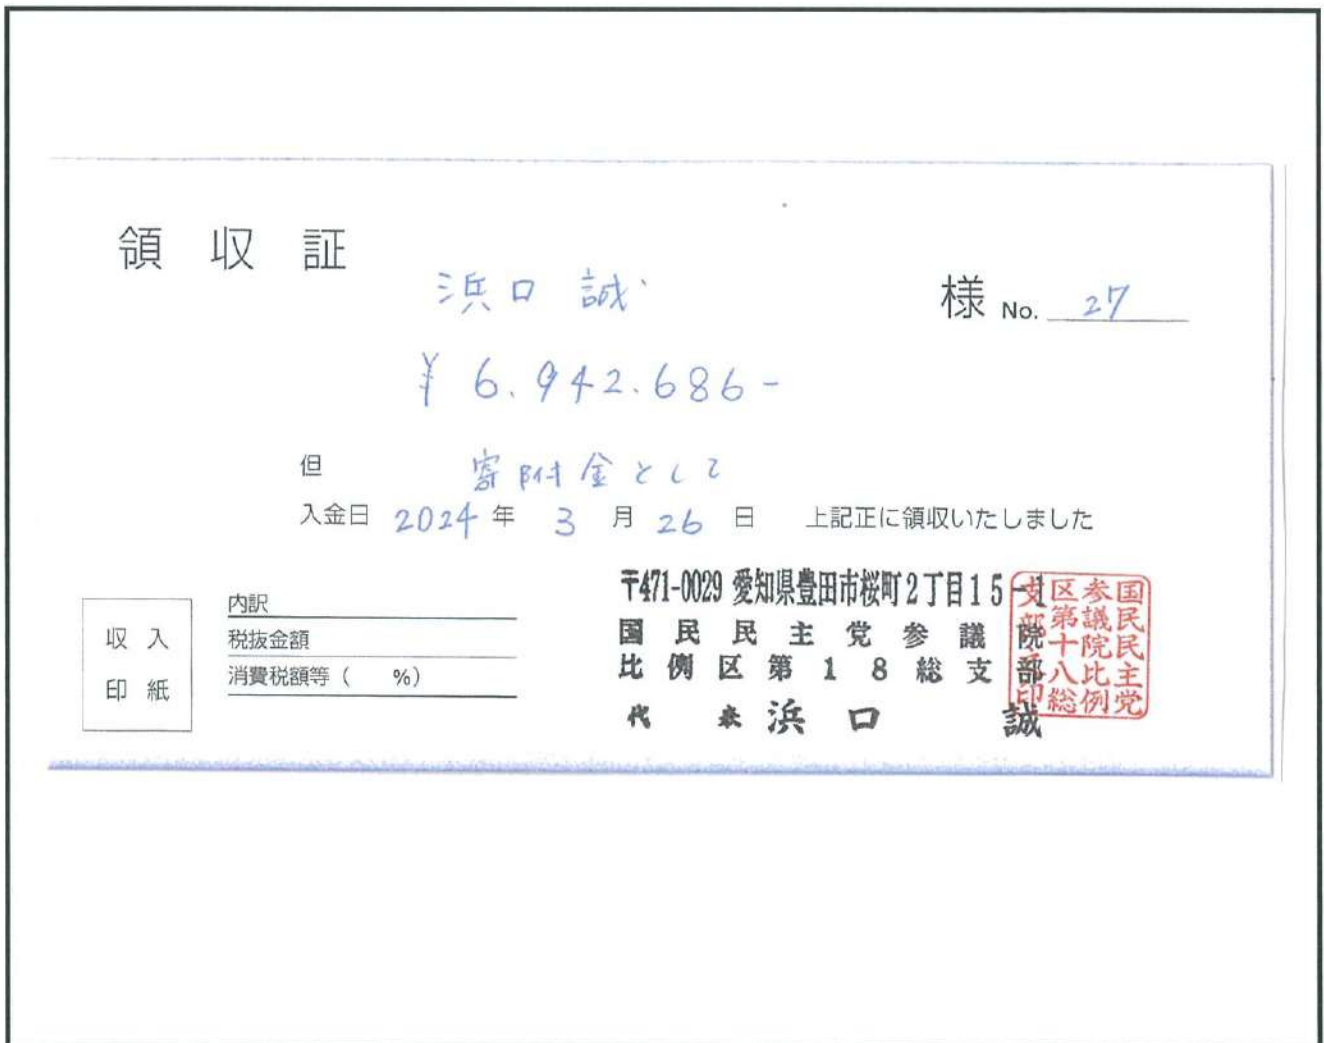 領収証
浜口 誠 様 No. 27
¥ 6.942.686-
但 寄附金として
入金日 2024 年 3 月 26 日 上記正に領収いたしました
収入
印紙
内訳
税抜金額
消費税額等（ %）
〒471-0029 愛知県豊田市桜町2丁目15-1
国民民主党参議院
比例区第18総支部
代表 浜口 誠
国民民主党
参議院比例
区第十八総
支部印